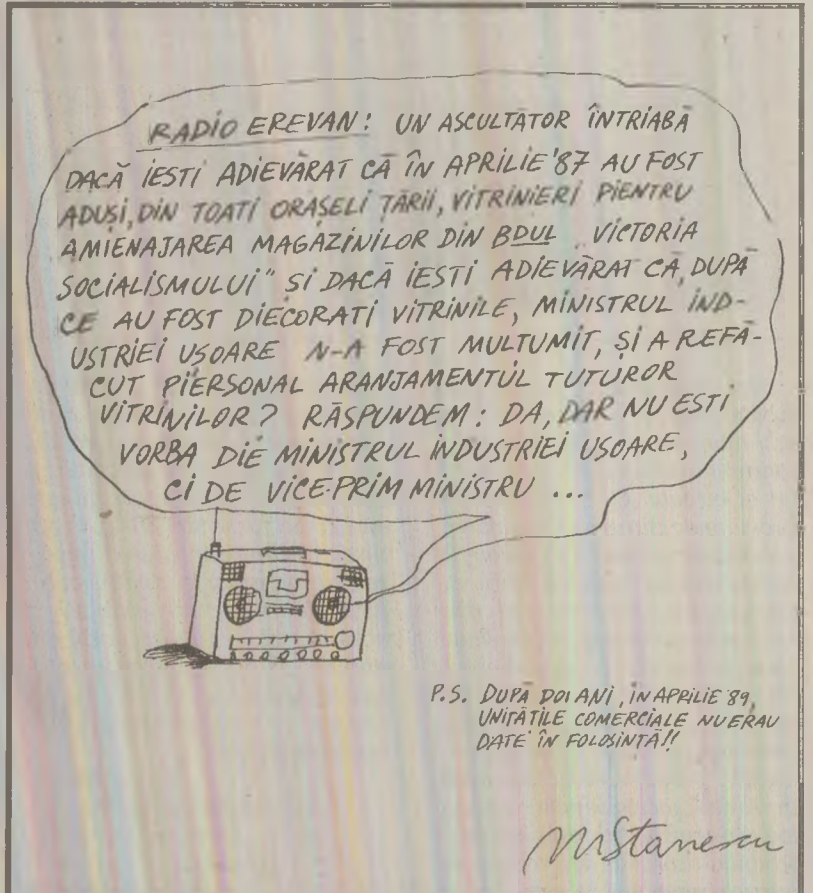 RADIO EREVAN: UN ASCULTĂTOR ÎNTRIABĂ
DACĂ IESTI ADIEVĂRAT CĂ ÎN APRILIE '87 AU FOST
ADUȘI, DIN TOATI ORAȘELI ȚĂRII, VITRINIERI PIENTRU
AMIENAJAREA MAGAZINILOR DIN BDUL „VICTORIA
SOCIALISMULUI" ȘI DACĂ IESTI ADIEVĂRAT CĂ, DUPĂ
CE AU FOST DIECORATI VITRINILE, MINISTRUL IND-
USTRIEI UȘOARE N-A FOST MULTUMIT, ȘI A REFĂ-
CUT PIERSONAL ARANJAMENTUL TUTUROR
VITRINILOR? RĂSPUNDEM: DA, DAR NU ESTI
VORBA DIE MINISTRUL INDUSTRIEI USOARE,
CI DE VICE-PRIM MINISTRU ...
P.S. DUPĂ DOI ANI, IN APRILIE '89,
UNITĂȚILE COMERCIALE NU ERAU
DATE ÎN FOLOSINȚĂ!!
MStanescu